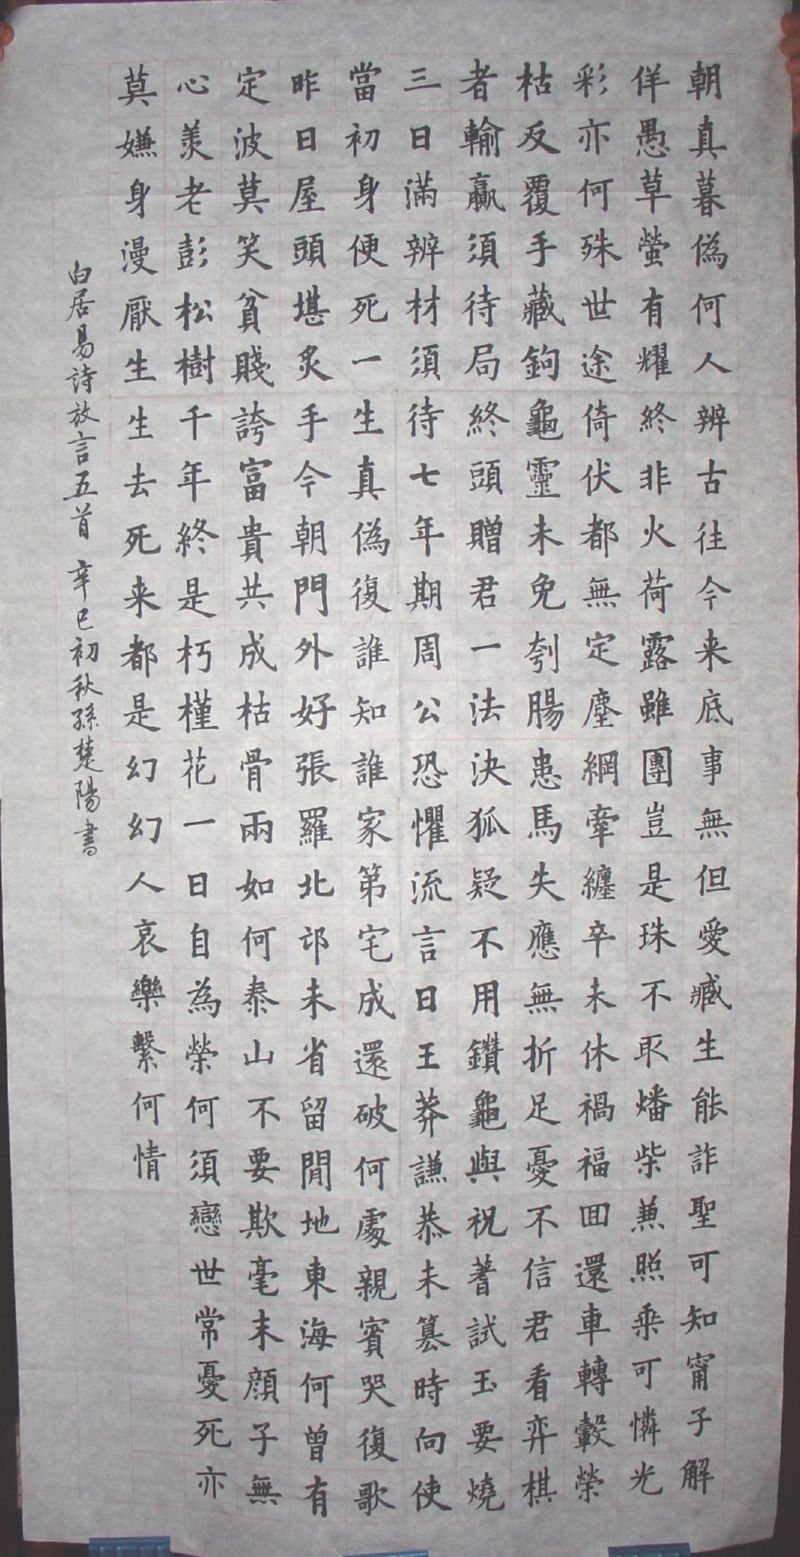 朝真暮偽何人辨古往今来底事無但愛臧生能詐聖可知甯子解
佯愚草螢有耀終非火荷露雖團豈是珠不取燔柴兼照乗可憐光
彩亦何殊世途倚伏都無定塵綱牽纏卒未休禍福囬還車轉轂榮
枯反覆手藏鉤龜靈未免刳腸患馬失應無折足憂不信君看弈棋
者輸贏須待局終頭贈君一法決狐疑不用鑽龜與祝蓍試玉要燒
三日滿辨材須待七年期周公恐懼流言日王莽謙恭未篡時向使
當初身便死一生真偽復誰知誰家第宅成還破何處親賓哭復歌
昨日屋頭堪炙手今朝門外好張羅北邙未省留閒地東海何曾有
定波莫笑貧賤誇富貴共成枯骨兩如何泰山不要欺毫末顔子無
心羨老彭松樹千年終是朽槿花一日自為榮何須戀世常憂死亦
莫嫌身漫厭生生去死来都是幻幻人哀樂繫何情
白居易詩放言五首 辛巳初秋孫楚陽書